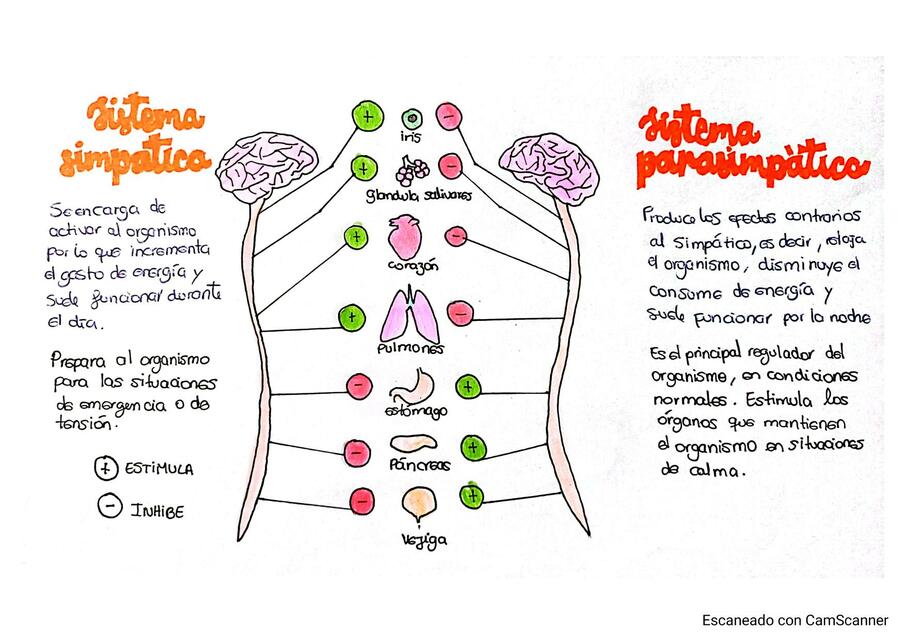 Sistema
simpático
Se encarga de
activar al organismo
por lo que incrementa
el gasto de energía y
suele funcionar durante
el día.
Prepara al organismo
para las situaciones
de emergencia o de
tensión.
+ ESTIMULA
- INHIBE
+ iris -
+ glandula salivares -
+ corazón -
+ Pulmones -
- estómago +
- Páncreas +
- Vejiga +
Sistema
parasimpàtico
Produce los efectos contrarios
al Simpático, es decir, relaja
el organismo, disminuye el
consumo de energía y
suele funcionar por la noche
Es el principal regulador del
organismo, en condiciones
normales. Estimula los
órganos que mantienen
el organismo en situaciones
de calma.
Escaneado con CamScanner